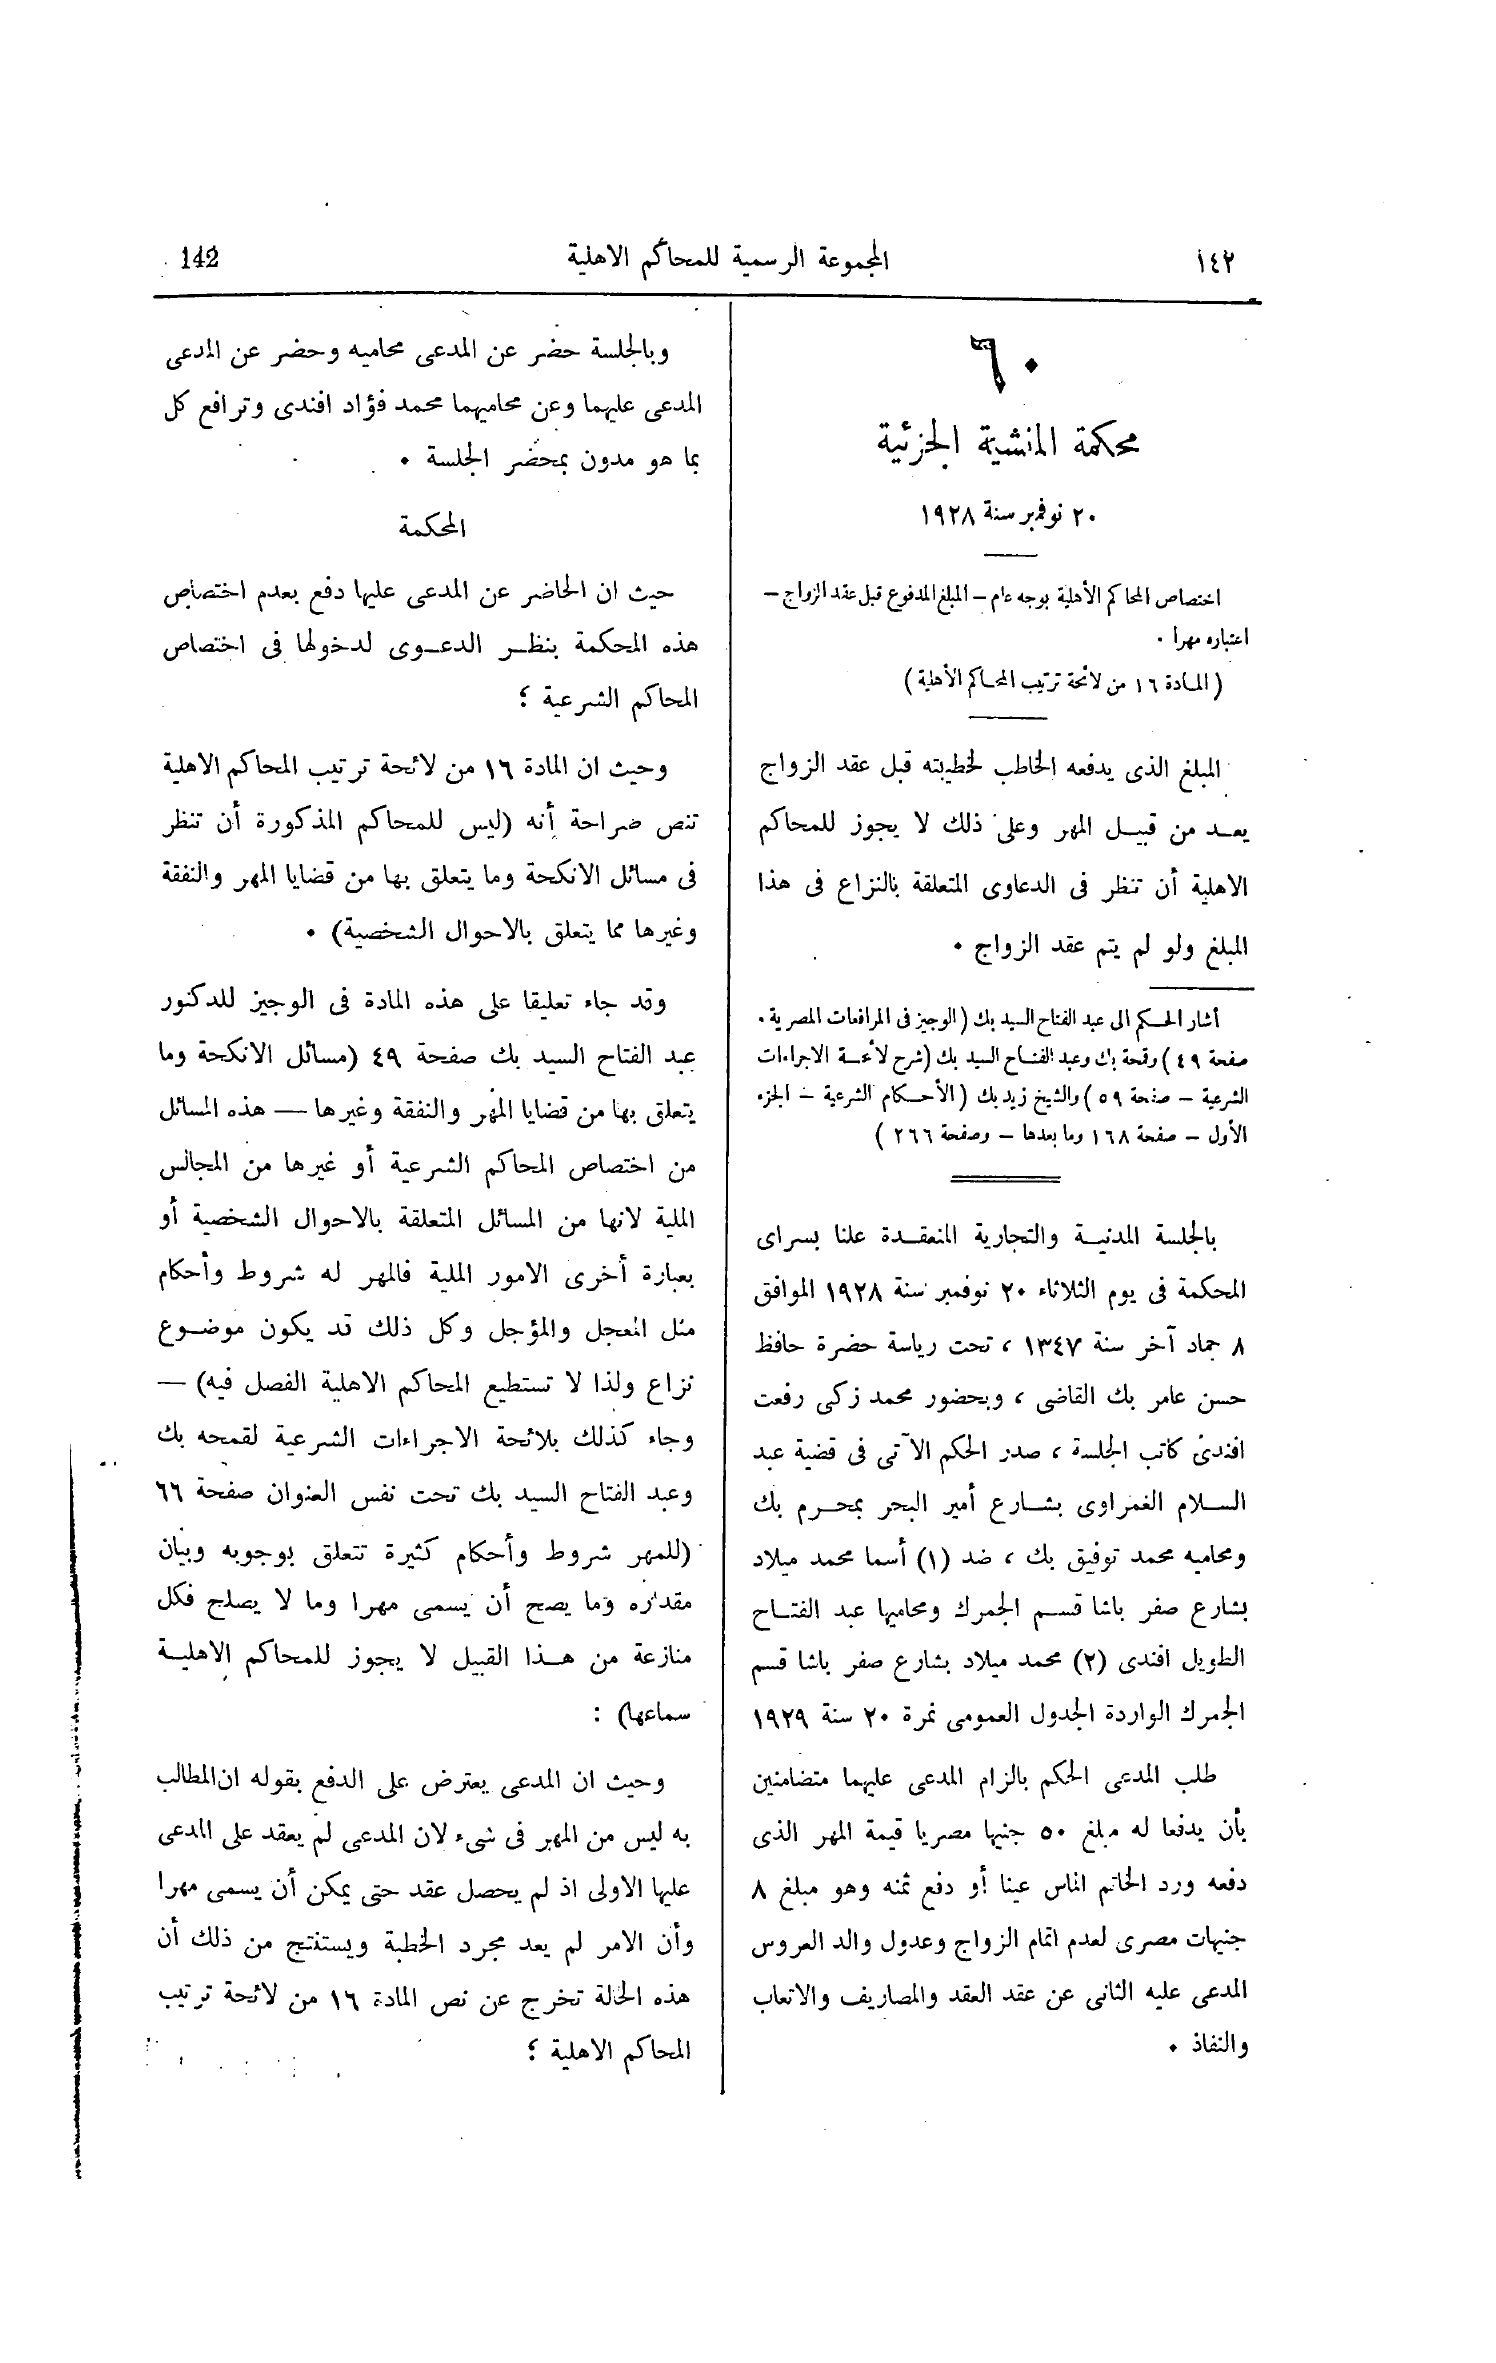 ١٤٢
المجموعة الرسمية للمحاكم الاهلية
142
٦٠
محكمة المنشية الجزئية
٢٠ نوفمبر سنة ١٩٢٨
اختصاص المحاكم الأهلية بوجه عام – المبلغ المدفوع قبل عقد الزواج –
اعتباره مهرا .
( المادة ١٦ من لائحة ترتيب المحاكم الأهلية )
المبلغ الذى يدفعه الخاطب لخطيبته قبل عقد الزواج
يعد من قبيل المهر وعلى ذلك لا يجوز للمحاكم
الاهلية أن تنظر فى الدعاوى المتعلقة بالنزاع فى هذا
المبلغ ولو لم يتم عقد الزواج .
أشار الحكم الى عبد الفتاح السيد بك ( الوجيز فى المرافعات المصرية .
صفحة ٤٩ ) وقمحة بك وعبد الفتاح السيد بك ( شرح لائحة الاجراءات
الشرعية – صفحة ٥٩ ) والشيخ زيد بك ( الأحكام الشرعية – الجزء
الأول – صفحة ١٦٨ وما بعدها – وصفحة ٢٦٦ )
بالجلسة المدنية والتجارية المنعقدة علنا بسراى
المحكمة فى يوم الثلاثاء ٢٠ نوفمبر سنة ١٩٢٨ الموافق
٨ جماد آخر سنة ١٣٤٧ ، تحت رياسة حضرة حافظ
حسن عامر بك القاضى ، وبحضور محمد زكى رفعت
افندى كاتب الجلسة ، صدر الحكم الآتى فى قضية عبد
السلام الغمراوى بشارع أمير البحر بمحرم بك
ومحاميه محمد توفيق بك ، ضد (١) أسما محمد ميلاد
بشارع صفر باشا قسم الجمرك ومحاميها عبد الفتاح
الطويل افندى (٢) محمد ميلاد بشارع صفر باشا قسم
الجمرك الواردة الجدول العمومى نمرة ٢٠ سنة ١٩٢٩
طلب المدعى الحكم بالزام المدعى عليهما متضامنين
بأن يدفعا له مبلغ ٥٠ جنيها مصريا قيمة المهر الذى
دفعه ورد الخاتم الماس عينا أو دفع ثمنه وهو مبلغ ٨
جنيهات مصرى لعدم اتمام الزواج وعدول والد العروس
المدعى عليه الثانى عن عقد العقد والمصاريف والاتعاب
والنفاذ .
وبالجلسة حضر عن المدعى محاميه وحضر عن المدعى
المدعى عليهما وعن محاميهما محمد فؤاد افندى وترافع كل
بما هو مدون بمحضر الجلسة .
المحكمة
حيث ان الحاضر عن المدعى عليها دفع بعدم اختصاص
هذه المحكمة بنظر الدعوى لدخولها فى اختصاص
المحاكم الشرعية ؛
وحيث ان المادة ١٦ من لائحة ترتيب المحاكم الاهلية
تنص صراحة أنه (ليس للمحاكم المذكورة أن تنظر
فى مسائل الانكحة وما يتعلق بها من قضايا المهر والنفقة
وغيرها مما يتعلق بالاحوال الشخصية) .
وقد جاء تعليقا على هذه المادة فى الوجيز للدكتور
عبد الفتاح السيد بك صفحة ٤٩ (مسائل الانكحة وما
يتعلق بها من قضايا المهر والنفقة وغيرها — هذه المسائل
من اختصاص المحاكم الشرعية أو غيرها من المجالس
الملية لانها من المسائل المتعلقة بالاحوال الشخصية أو
بعبارة أخرى الامور الملية فالمهر له شروط وأحكام
مثل المعجل والمؤجل وكل ذلك قد يكون موضوع
نزاع ولذا لا تستطيع المحاكم الاهلية الفصل فيه) —
وجاء كذلك بلائحة الاجراءات الشرعية لقمحه بك
وعبد الفتاح السيد بك تحت نفس العنوان صفحة ٦٦
(للمهر شروط وأحكام كثيرة تتعلق بوجوبه وبيان
مقداره وما يصح أن يسمى مهرا وما لا يصلح فكل
منازعة من هذا القبيل لا يجوز للمحاكم الاهلية
سماعها) :
وحيث ان المدعى يعترض على الدفع بقوله ان المطالب
به ليس من المهر فى شىء لان المدعى لم يعقد على المدعى
عليها الاولى اذ لم يحصل عقد حتى يمكن أن يسمى مهرا
وأن الامر لم يعد مجرد الخطبة ويستنتج من ذلك أن
هذه الحالة تخرج عن نص المادة ١٦ من لائحة ترتيب
المحاكم الاهلية ؛